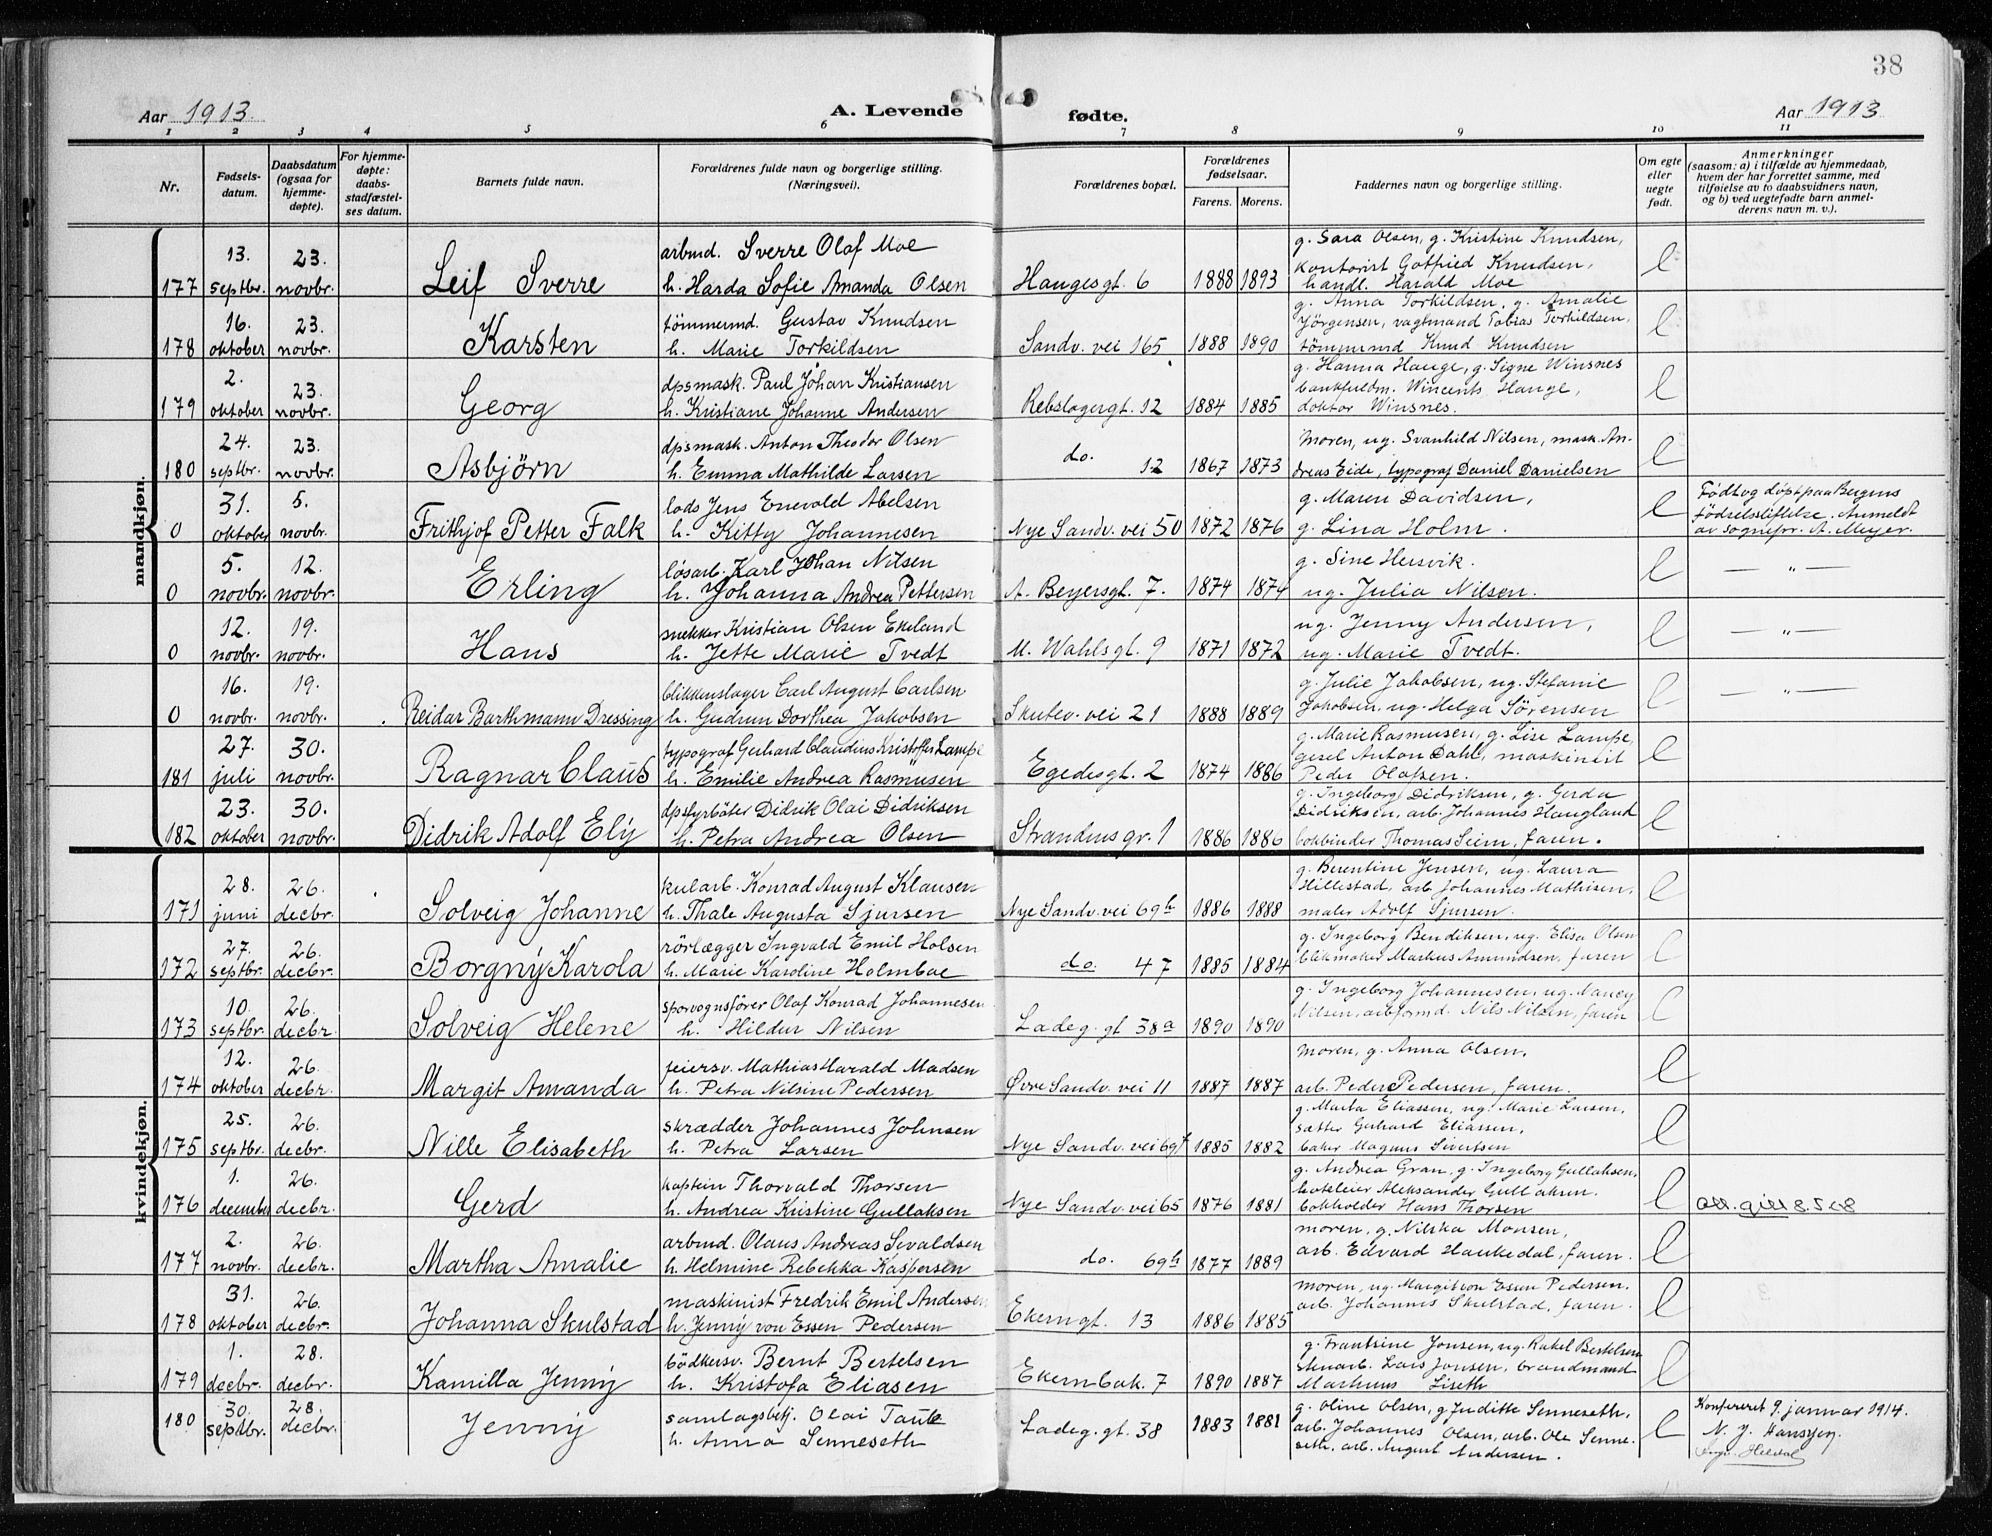 38
Aar 1913.
A. Levende
fødte.
Aar 1913
1 2 3 4 5 6 7 8 9 10 11
Nr.
Fødsels-
datum.
Daabsdatum
(ogsaa for
hjemme-
døpte).
For hjemme-
døpte:
daabs-
stadfæstel-
ses datum.
Barnets fulde navn.
Forældrenes fulde navn og borgerlige stilling.
(Næringsvei).
Forældrenes bopæl.
Forældrenes
fødselsaar.
Farens. Morens.
Faddernes navn og borgerlige stilling.
Om egte
eller
uegte
født.
Anmerkninger
(saasom: a) i tilfælde av hjemmedaab,
hvem der har forrettet samme, med
tilføielse av to daabsvidners navn,
og b) ved uegtefødte barn anmel-
derens navn m. v.).
mandkjøn.
13. 23. arbmd. Sverre Olaf Moe g. Sara Olsen, g. Kristine Knudsen,
kontorist Gotfried Knudsen,
177 septbr. novbr. Leif Sverre h. Harda Sofie Amanda Olsen Haugesgt. 6 1888 1893 handl. Harald Moe e
16. 23. tømmermd. Gustav Knudsen g. Anna Torkildsen, g. Amalie
Jörgensen, vagtmand Tobias Torkildsen,
178 oktober novbr. Karsten h. Marie Torkildsen Sandv. vei 165 1888 1890 tömmermd Knud Knudsen e
2. 23. dpsmask. Paul Johan Kristiansen g. Hanna Hauge, g. Signe Winsnes
bankfuldm. Wincents Hauge,
179 oktober novbr. Georg h. Kristiane Johanne Andersen Rebslagergt. 12 1884 1885 doktor Winsnes. e
24. 23. dpsmask. Anton Theodor Olsen Moren, ug. Svanhild Nilsen, mask. An-
180 septbr. novbr. Asbjörn h. Emma Mathilde Larsen do. 12 1867 1873 dreas Eide, typograf Daniel Danielsen e
31. 5. lods Jens Enevold Abelsen g. Maren Davidsen, Født og døpt paa Bergens
fødselsstiftelse. Anmeldt
0 oktober novbr. Frithjof Petter Falk h. Kitty Johannesen Nye Sandv. vei 50 1872 1876 g. Lina Holm. e av sognepr. A. Meyer.
5. 12. løsarb. Karl Johan Nilsen g. Sine Hersvik.
0 novbr. novbr. Erling h. Johanna Andrea Pettersen A. Beyersgt. 7. 1874 1874 ug. Julia Nilsen. e — „ —
12. 19. snekker Kristian Olsen Ekeland ug. Jenny Andersen,
0 novbr. novbr. Hans h. Jette Marie Tvedt M. Wahlsgt. 9 1871 1872 ug. Marie Tvedt. e — „ —
16. 19. blikkenslager Carl August Carlsen g. Julie Jakobsen, ug. Stefanie
0 novbr. novbr. Reidar Barthmann Dressing h. Gudrun Dorthea Jakobsen Skutev. vei 21 1888 1889 Jakobsen, ug. Helga Sørensen e — „ —
27. 30. typograf Gerhard Claudius Kristoffer Lampe g. Marie Rasmusen, g. Lise Lampe,
gesel Anton Dahl, maskinist
181 juli novbr. Ragnar Claus h. Emilie Andrea Rasmusen Egedesgt. 2 1874 1886 Peder Olafsen. e
23. 30. dpsfyrböter Didrik Olai Didriksen g. Ingeborg Didriksen, g. Gerda
Didriksen, arb. Johannes Haugland
182 oktober novbr. Didrik Adolf Ely h. Petra Andrea Olsen Strandens gr. 1 1886 1886 bokbinder Thomas Seim, faren. e
kvindekjøn.
28. 26. kularb. Konrad August Klausen g. Berentine Jensen, ug. Laura
Hillestad, arb. Johannes Mathisen,
171 juni decbr. Solveig Johanne h. Thale Augusta Sjursen Nye Sandv. vei 69 h 1886 1888 maler Adolf Sjursen. e
27. 26. rörlægger Ingvald Emil Holsen g. Ingeborg Bendiksen, ug. Elisa Olsen
172 septbr. decbr. Borgny Karola h. Marie Karoline Holmboe do. 47 1885 1884 blikmaker Markus Amundsen, faren e
10. 26. sporvognsfører Olaf Konrad Johannesen g. Ingeborg Johannesen, ug. Nancy
173 septbr. decbr. Solveig Helene h. Hildur Nilsen Ladeg. gt 38 a 1890 1890 Nilsen, arbformd. Nils Nilsen, faren e
12. 26. feiersv. Mathias Harald Madsen Moren, g. Anna Olsen,
174 oktober decbr. Margit Amanda h. Petra Nilsine Pedersen Øvre Sandv. vei 11 1887 1887 arb. Peder Pedersen, faren. e
25. 26. skrædder Johannes Johnsen g. Marta Eliassen, ug. Marie Larsen,
sætter Gerhard Eliassen,
175 septbr. decbr. Nille Elisabeth h. Petra Larsen Nye Sandv. vei 69 f 1885 1882 baker Magnus Sivertsen e
1. 26. kaptein Thorvald Thorsen g. Andrea Gran, g. Ingeborg Gullaksen,
hoteleier Aleksander Gullaksen.
176 december decbr. Gerd h. Andrea Kristine Gullaksen Nye Sandv. vei 65 1876 1881 bokholder Hans Thorsen e att. gitt 8.5.48
2. 26. arbmd. Olaus Andreas Sevaldsen moren, g. Nilska Monsen,
177 novbr. decbr. Martha Amalie h. Helmine Rebekka Kaspersen do. 69 h 1877 1889 arb. Edvard Haukedal, faren. e
31. 26. maskinist Fredrik Emil Andersen moren, ug. Margit von Essen Pedersen.
178 oktober decbr. Johanna Skulstad h. Jenny von Essen Pedersen Ekerngt. 13 1886 1885 arb. Johannes Skulstad, faren. e
1. 28. bödkersv. Bernt Bertelsen g. Frantsine Jonsen, ug. Rakel Bertelsen
skoarb. Lars Jonsen, brandmand
179 decbr. decbr. Kamilla Jenny h. Kristofa Eliasen Ekernbak. 7 1890 1887 Markuus Liseth e
30. 28. samlagsbetj. Olai Taule g. Oline Olsen, g Juditte Senneseth, Konfereret 9. januar 1914.
180 septbr. decbr. Jenny h. Anna Senneseth Ladeg. gt. 38 1883 1881 arb. Johannes Olsen, arb. Ole Senne- e
seth, arb. August Andersen.